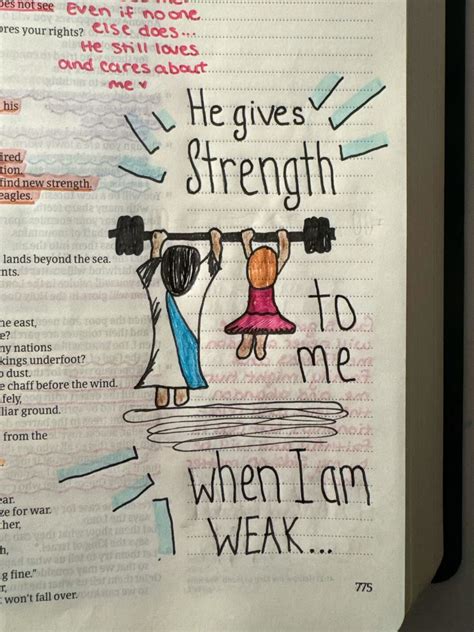 oes not see
Even if no one
ores your rights?
else does...
He still loves
and cares about
me ♥
his
He gives
Strength
ired,
tion,
find new strength.
eagles.
lands beyond the sea.
nts.
to
me
he east,
e?
ny nations
kings underfoot?
o dust.
e chaff before the wind.
fely,
liar ground.
from the
when I am
WEAK...
ear.
ge for war.
ther,
h,
g fine."
r,
won't fall over.
775